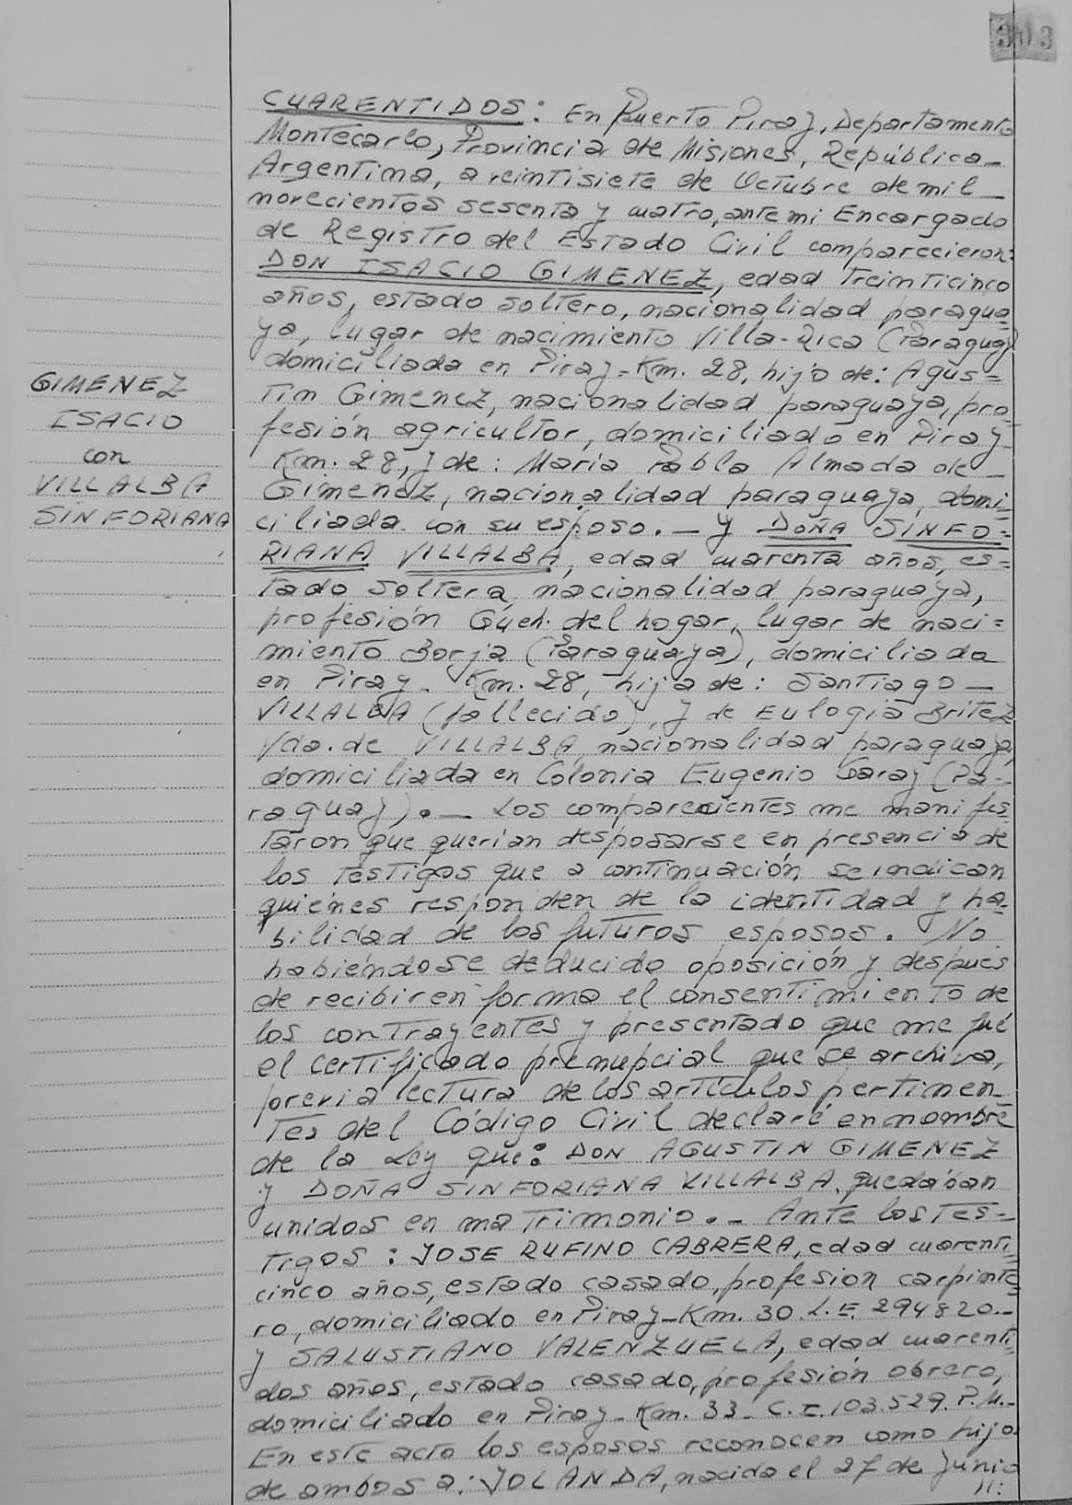 303
CUARENTIDOS: En Puerto Piray, Departamento
Montecarlo, Provincia de Misiones, República
Argentina, a veintisiete de Octubre de mil
novecientos sesenta y cuatro, ante mi Encargado
de Registro del Estado Civil comparecieron:
DON ISACIO GIMENEZ, edad Treinticinco
años, estado soltero, nacionalidad paragua
ya, lugar de nacimiento Villa-Rica (Paraguay)
domiciliada en Piray-Km. 28, hijo de: Agus=
tin Gimenez, nacionalidad paraguaya, pro
fesión agricultor, domiciliado en Piray-
Km. 28, y de: Maria Pabla Almada de
Gimenez, nacionalidad paraguaya, domi
ciliada con su esposo. - y DOÑA SINFO=
RIANA VILLALBA, edad cuarenta años, es=
tado soltera, nacionalidad paraguaya,
profesión Queh. del hogar, lugar de naci=
miento Borja (Paraguaya), domiciliada
en Piray. Km. 28, hija de: Santiago
VILLALBA (fallecido), y de Eulogia Britez
Vda. de VILLALBA, nacionalidad paraguaya,
domiciliada en Colonia Eugenio Garay (Pa-
raguay). - Los comparecientes me manifes
taron que querian desposarse en presencia de
los testigos que a continuación se indican
quiénes responden de la identidad y ha-
bilidad de los futuros esposos. No
habiéndose deducido oposición y despues
de recibir en forma el consentimiento de
los contrayentes y presentado que me fué
el certificado prenupcial que se archiva,
previa lectura de los artículos pertinen-
tes del Código Civil declaré en nombre
de la Ley que: DON AGUSTIN GIMENEZ
y DOÑA SINFORIANA VILLALBA, quedaban
unidos en matrimonio. - Ante los tes=
tigos: JOSE RUFINO CABRERA, edad cuarenti
cinco años, estado casado, profesion carpinte
ro, domiciliado en Piray-Km. 30. L.E. 294820.-
y SALUSTIANO VALENZUELA, edad cuarenti
dos años, estado casado, profesión obrero,
domiciliado en Piray-Km. 33- C.I. 103.529. P.M.-
En este acto los esposos reconocen como hijo
de ambos a: YOLANDA, nacida el 27 de Junio
//:
GIMENEZ
ISACIO
con
VILLALBA
SINFORIANA